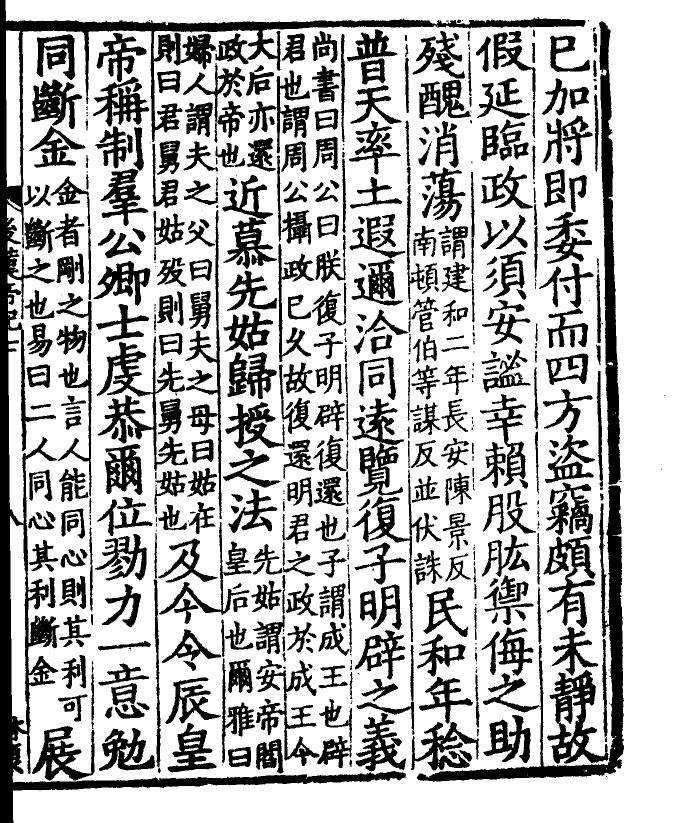 已加將即委付而四方盜竊頗有未靜故
假延臨政以須安謐幸賴股肱禦侮之助
殘醜消蕩謂建和二年長安陳景反
南頓管伯等謀反並伏誅民和年稔
普天率土遐邇洽同遠覽復子明辟之義
尚書曰周公曰朕復子明辟復還也子謂成王也辟
君也謂周公攝政已久故復還明君之政於成王今
大后亦還
政於帝也近慕先姑歸授之法先姑謂安帝閻
皇后也爾雅曰
婦人謂夫之父曰舅夫之母曰姑在
則曰君舅君姑歿則曰先舅先姑也及今令辰皇
帝稱制羣公卿士虔恭爾位勠力一意勉
同斷金金者剛之物也言人能同心則其利可
以斷之也易曰二人同心其利斷金展